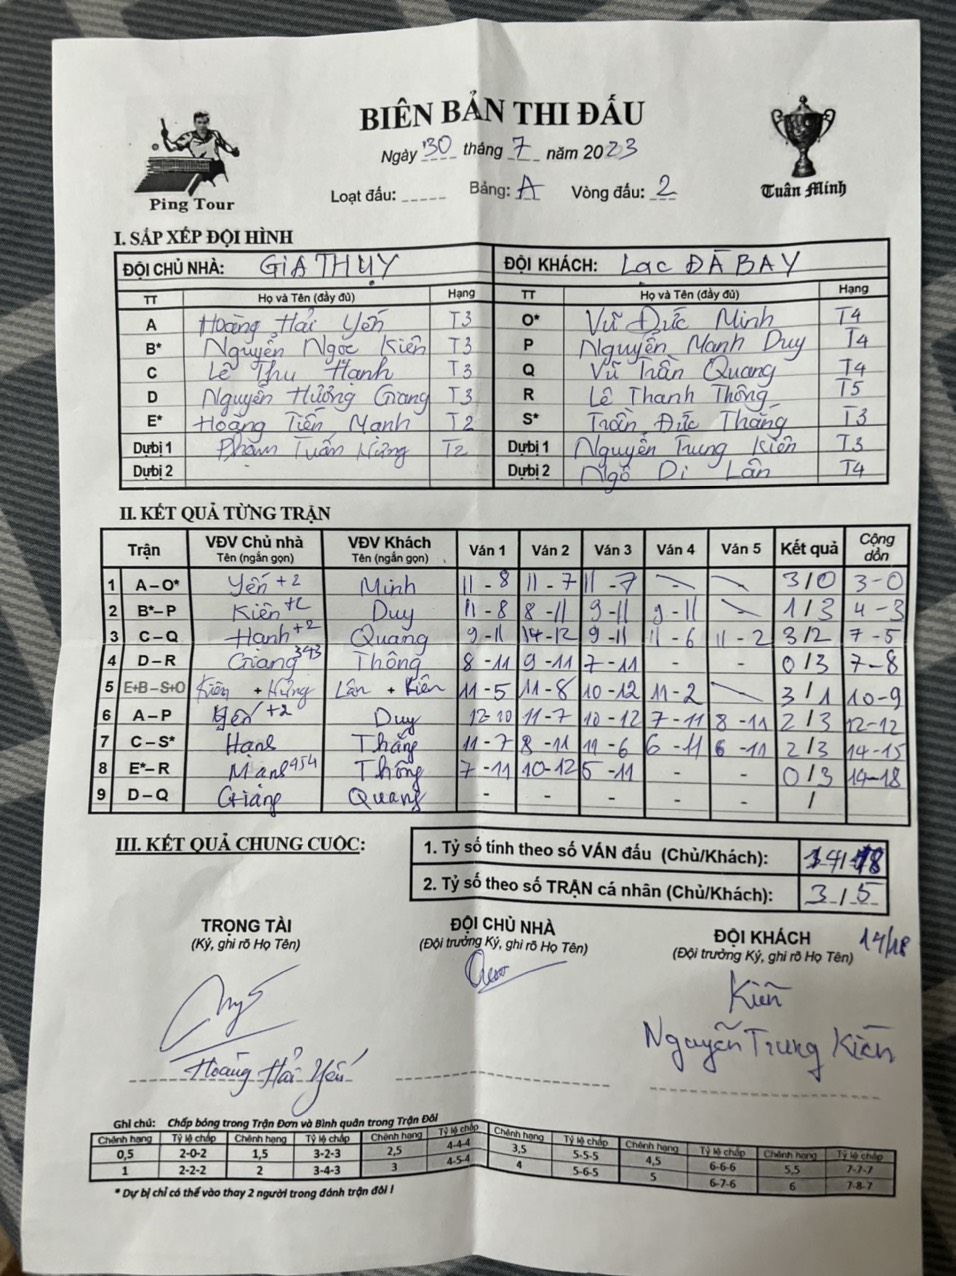 BIÊN BẢN THI ĐẤU
Ngày 30 tháng 7 năm 2023
Loạt đấu: Bảng: A Vòng đấu: 2
Ping Tour
Tuân Minh
I. SẮP XẾP ĐỘI HÌNH
ĐỘI CHỦ NHÀ: GIA THỤY ĐỘI KHÁCH: LẠC ĐÀ BAY
TT Họ và Tên (đầy đủ) Hạng TT Họ và Tên (đầy đủ) Hạng
A Hoàng Hải Yến T3 O* Vũ Đức Minh T4
B* Nguyễn Ngọc Kiên T3 P Nguyễn Mạnh Duy T4
C Lê Thu Hạnh T3 Q Vũ Trần Quang T4
D Nguyễn Hương Giang T3 R Lê Thanh Thông T5
E* Hoàng Tiến Mạnh T2 S* Trần Đức Thắng T3
Dựbị 1 Phạm Tuấn Hưng T2 Dựbị 1 Nguyễn Trung Kiên T3
Dựbị 2 Dựbị 2 Ngô Di Lân T4
II. KẾT QUẢ TỪNG TRẬN
Trận VĐV Chủ nhà Tên (ngắn gọn) VĐV Khách Tên (ngắn gọn) Ván 1 Ván 2 Ván 3 Ván 4 Ván 5 Kết quả Cộng dồn
1 A – O* Yến +2 Minh 11 - 8 11 - 7 11 - 7 3/0 3-0
2 B* – P Kiên +2 Duy 11 - 8 8 - 11 9 - 11 9 - 11 1/3 4-3
3 C – Q Hạnh +2 Quang 9 - 11 14 - 12 9 - 11 11 - 6 11 - 2 3/2 7-5
4 D – R Giang 343 Thông 8 - 11 9 - 11 7 - 11 - - 0/3 7-8
5 E+B – S+O Kiên + Hưng Lân + Kiên 11 - 5 11 - 8 10 - 12 11 - 2 3/1 10-9
6 A – P Yến +2 Duy 12-10 11 - 7 10 - 12 7 - 11 8 - 11 2/3 12-12
7 C – S* Hạnh Thắng 11 - 7 8 - 11 11 - 6 6 - 11 6 - 11 2/3 14-15
8 E* – R Mạnh 454 Thông 7 - 11 10-12 5 - 11 - - 0/3 14-18
9 D – Q Giang Quang - - - - - /
III. KẾT QUẢ CHUNG CUỘC:
1. Tỷ số tính theo số VÁN đấu (Chủ/Khách): 14/18
2. Tỷ số theo số TRẬN cá nhân (Chủ/Khách): 3/5
TRỌNG TÀI
(Ký, ghi rõ Họ Tên)
ĐỘI CHỦ NHÀ
(Đội trưởng Ký, ghi rõ Họ Tên)
ĐỘI KHÁCH 14/18
(Đội trưởng Ký, ghi rõ Họ Tên)
Kiên
Hoàng Hải Yến
Nguyễn Trung Kiên
Ghi chú: Chấp bóng trong Trận Đơn và Bình quân trong Trận Đôi
Chênh hạng Tỷ lệ chấp Chênh hạng Tỷ lệ chấp Chênh hạng Tỷ lệ chấp Chênh hạng Tỷ lệ chấp Chênh hạng Tỷ lệ chấp Chênh hạng Tỷ lệ chấp
0,5 2-0-2 1,5 3-2-3 2,5 4-4-4 3,5 5-5-5 4,5 6-6-6 5,5 7-7-7
1 2-2-2 2 3-4-3 3 4-5-4 4 5-6-5 5 6-7-6 6 7-8-7
* Dự bị chỉ có thể vào thay 2 người trong đánh trận đôi !